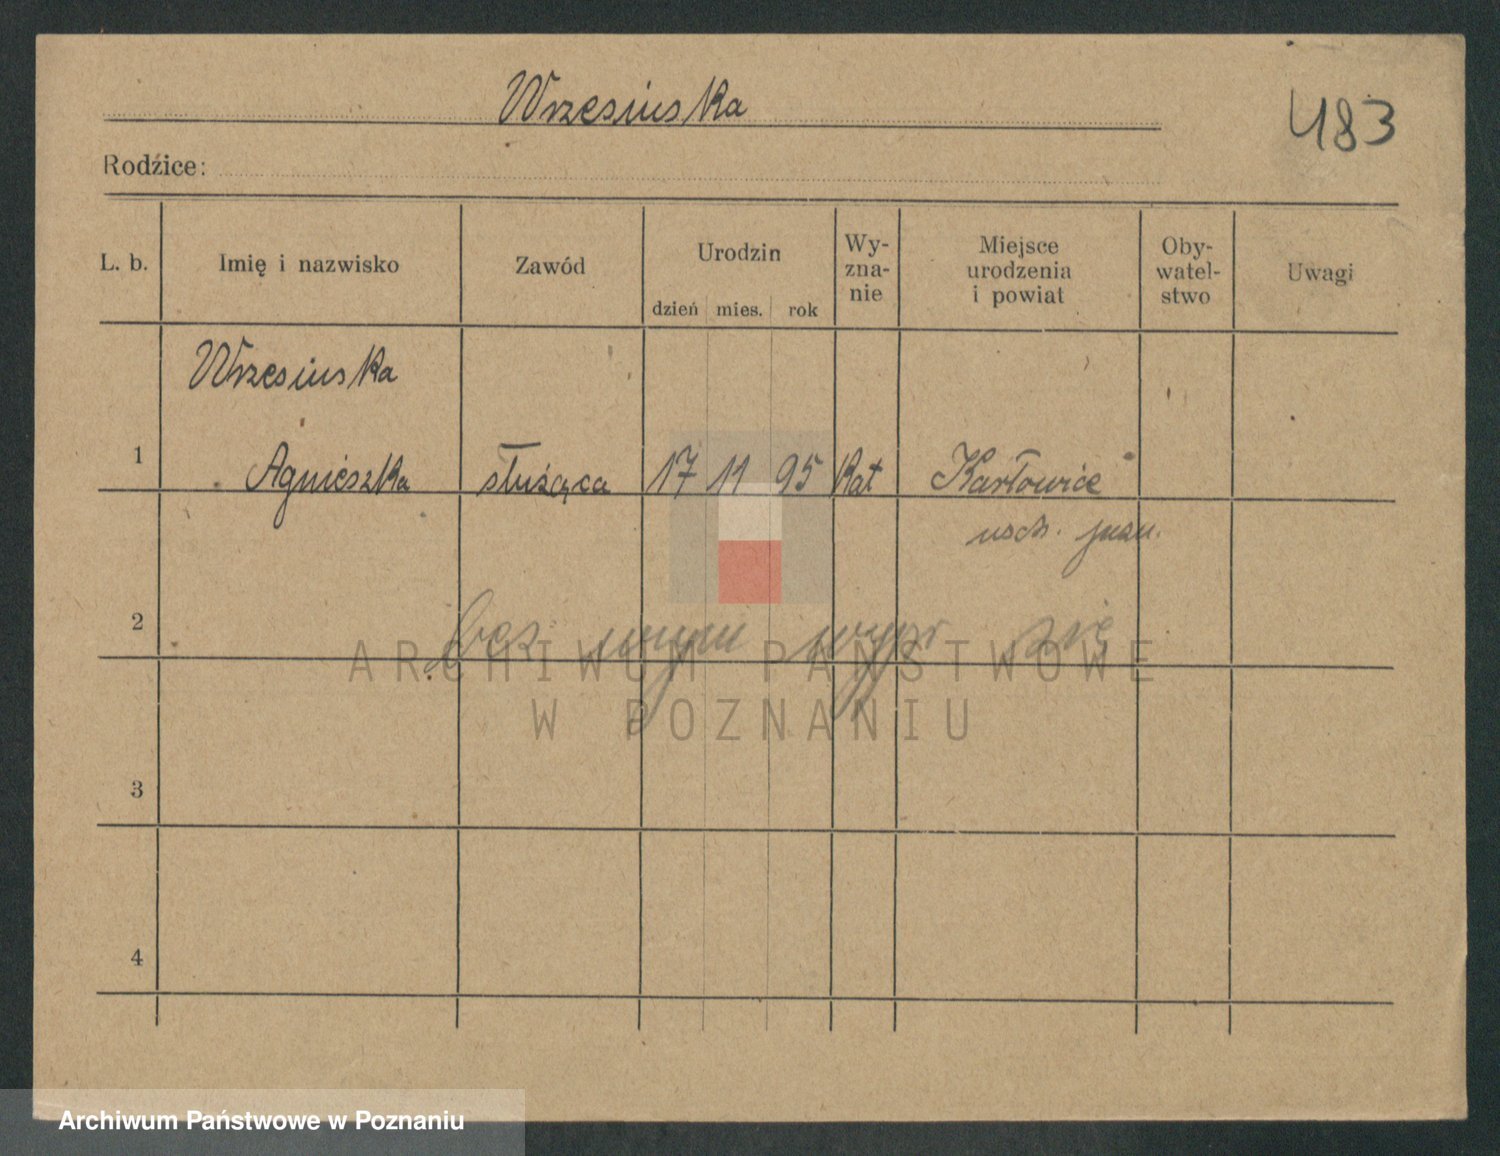 Wrzesinska
483
Rodźice:
L. b.
Imię i nazwisko
Zawód
Urodzin
dzień mies. rok
Wy-
zna-
nie
Miejsce
urodzenia
i powiat
Oby-
watel-
stwo
Uwagi
Wrzesinska
1 Agnieszka służąca 17 11 95 Kat Karłowice
wsch.
2
bez się
3
4
ARCHIWUM PAŃSTWOWE
W POZNANIU
Archiwum Państwowe w Poznaniu